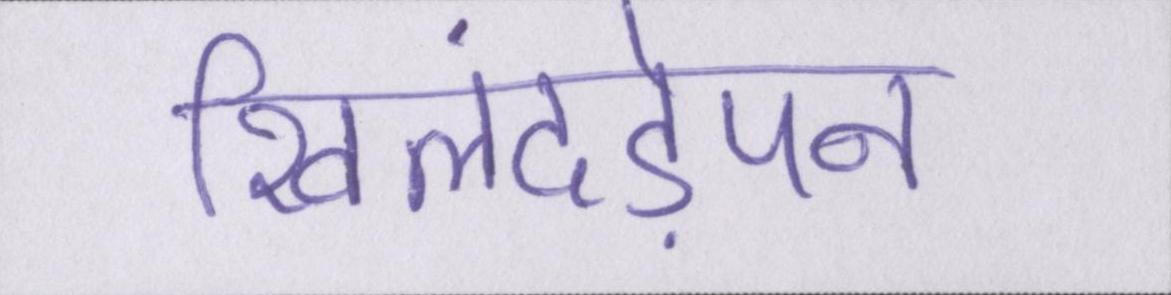 खिलंदड़ेपन